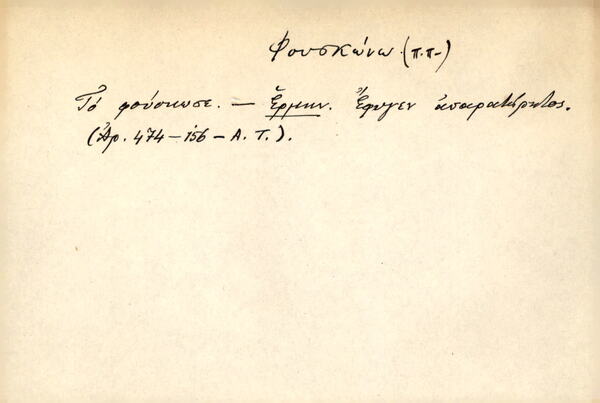 Φουσκώνω (π.π-)
Τό φούσκωσε. — Ἑρμην. Ἔφυγεν ἀπαρατήρητος.
(Ἀρ. 474-156-Α.Τ.).